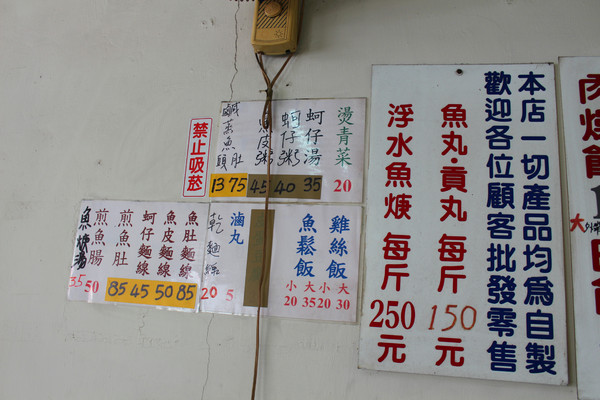 本店一切產品均為自製
歡迎各位顧客批發零售
魚丸·貢丸 每斤150元
浮水魚焿 每斤250元
燙青菜 20
蚵仔湯 35
蚵仔粥 40
魚皮粥 45
75
禁止吸菸
雞絲飯 大30 小20
魚鬆飯 大35 小20
滷丸 5
乾麵線 20
魚肚麵線 85
魚皮麵線 50
蚵仔麵線 45
煎魚肚 85
煎魚腸 50
魚焿湯 35